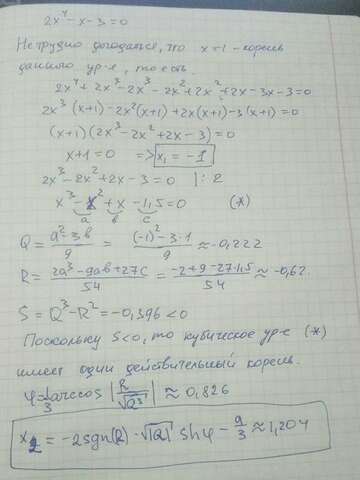 2x⁴-x-3=0
Не трудно догадаться, что x=1 - корень
данного ур-е, то есть.
2x⁴+2x³-2x³-2x²+2x²+2x-3x-3=0
2x³(x+1)-2x²(x+1)+2x(x+1)-3(x+1)=0
(x+1)(2x³-2x²+2x-3)=0
x+1=0 => x₁=-1
2x³-2x²+2x-3=0 |:2
x³-x²+x-1,5=0 (*)
a b c
Q = (a²-3b)/9 = ((-1)²-3·1)/9 ≈ -0,222
R = (2a³-9ab+27c)/54 = (-2+9-27·1,5)/54 ≈ -0,62.
S = Q³-R² = -0,396 < 0
Поскольку S<0, то кубическое ур-е (*)
имеет один действительный корень.
φ = 1/3 arccos |R/√Q³| ≈ 0,826
x₂ = -2sgn(R)·√|Q| shφ - a/3 ≈ 1,204